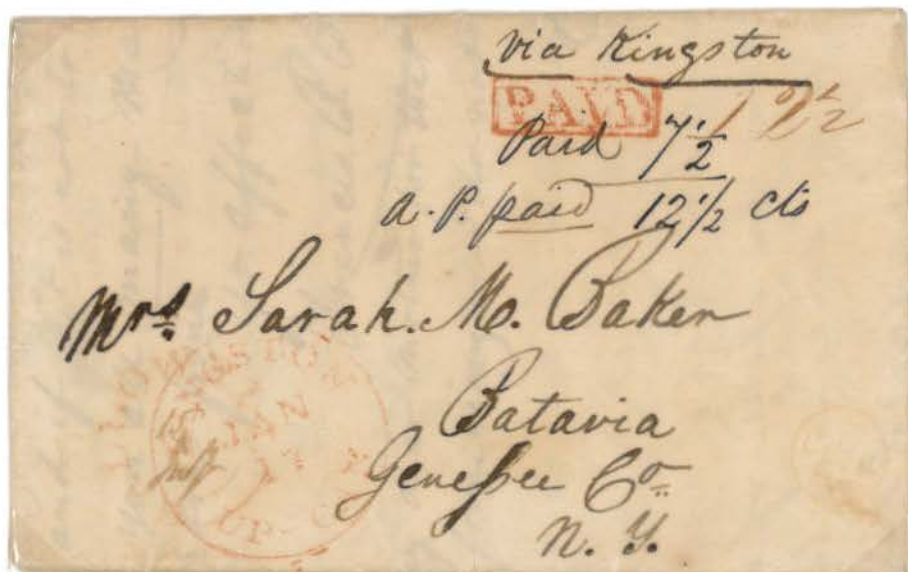 via Kingston
PAID
12½
Paid 7½
a. P. paid 12½ cts
Mrs. Sarah. M. Baker
JAN
Batavia
Geneſsee Co.
N. Y.